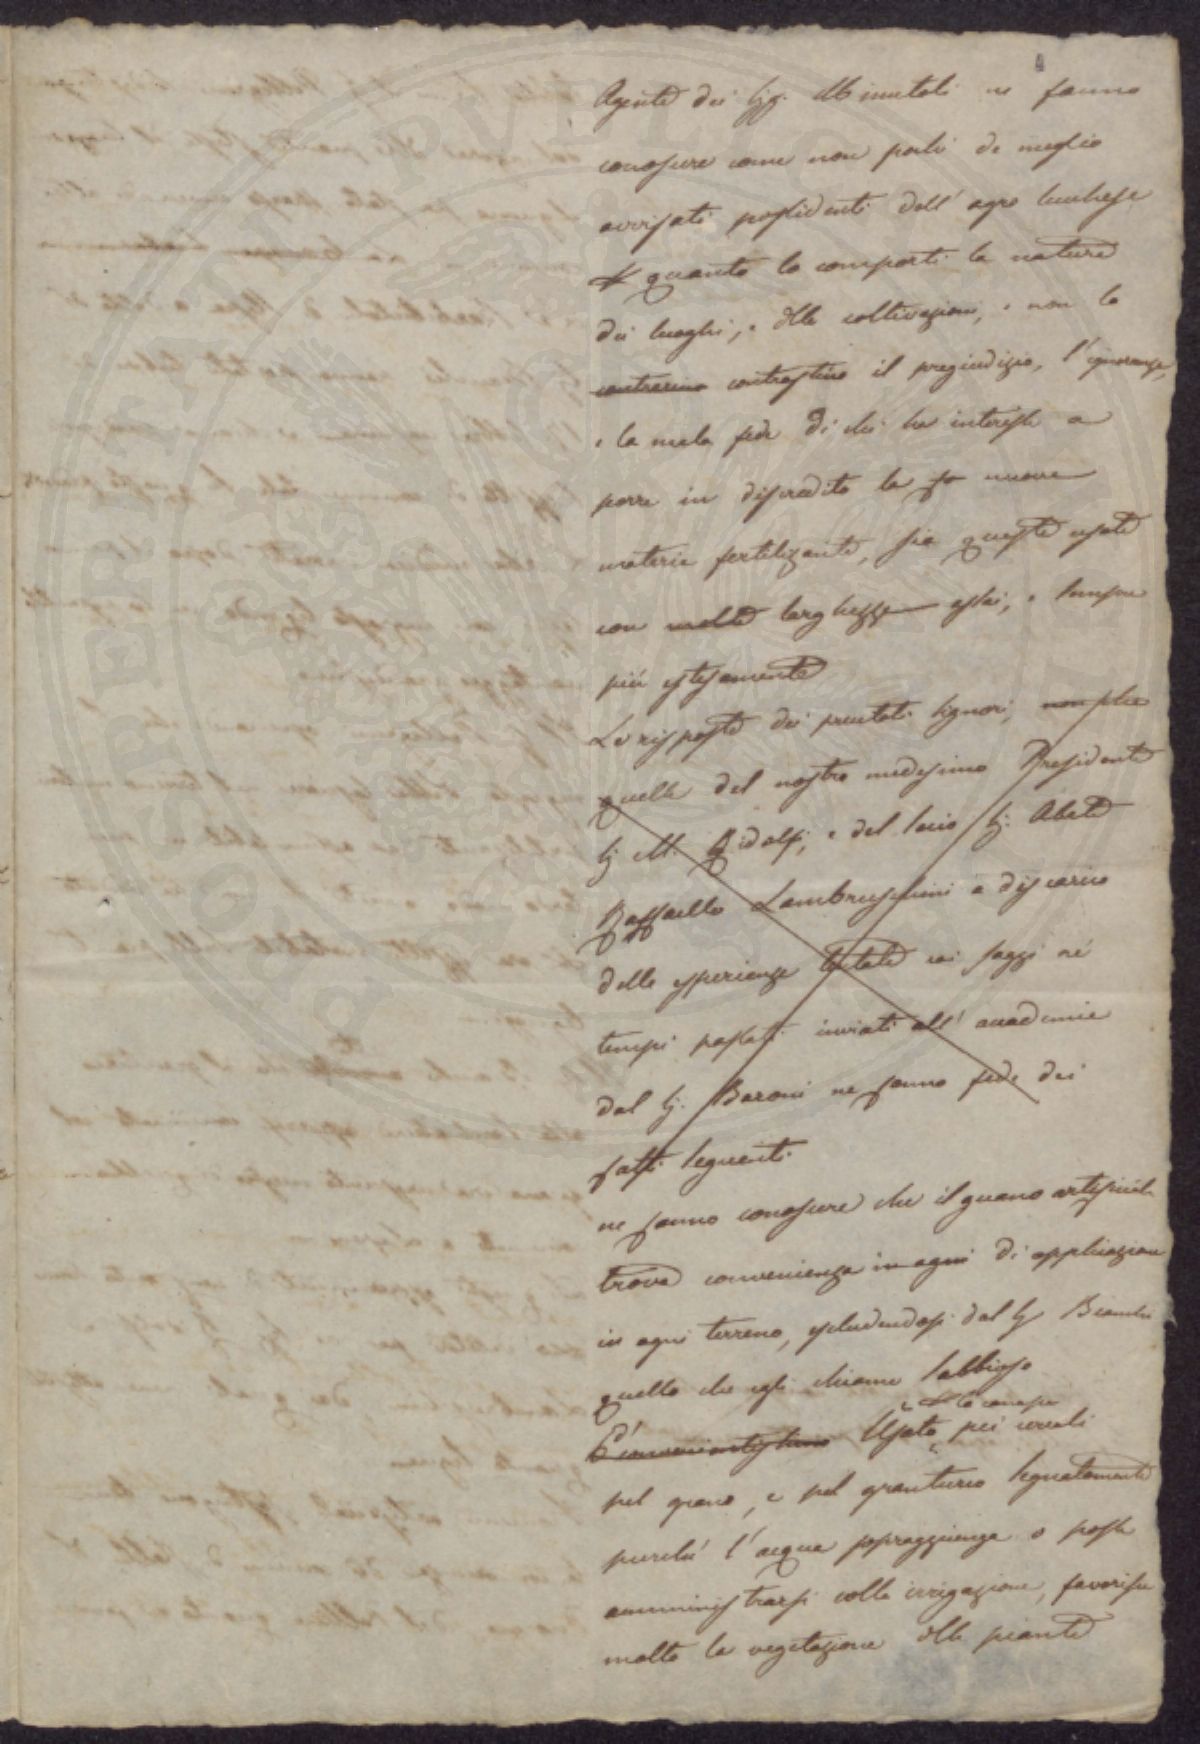 4
Agente dei Sigg. Minutoli ne fanno
conoscere come non pochi de meglio
avvisati possidenti dell' agro lucchese
quanto lo comporti la natura
dei luoghi, e delle coltivazioni, e non lo
contrarino contrastino il pregiudizio, l'ignoranza,
e la mala fede di chi ha interesse a
porre in discredito la nuova
materia fertilizzante, sia questa usata
con molta larghezza assai, e sempre
più estesamente
Le risposte dei precitati Signori,
quelle del nostro medesimo Presidente
Sig. M. Ridolfi, e del socio Sig. Abate
Raffaello Lambruschini a discarico
delle esperienze tentate coi saggi nei
tempi passati inviati all' accademia
dal Sig. Baroni ne fanno fede dei
fatti seguenti
ne fanno conoscere che il guano artificiale
trova convenienza in ogni di applicazione
in ogni terreno, escludendosi dal Sig. Bianchi
quello che egli chiama sabbioso
la canapa
È convenientissimo Usato pei cereali
pel grano, e pel granturco segnatamente
purché l'acqua sopraggiunga o possa
amministrarsi colla irrigazione, favorisce
molto la vegetazione delle piante